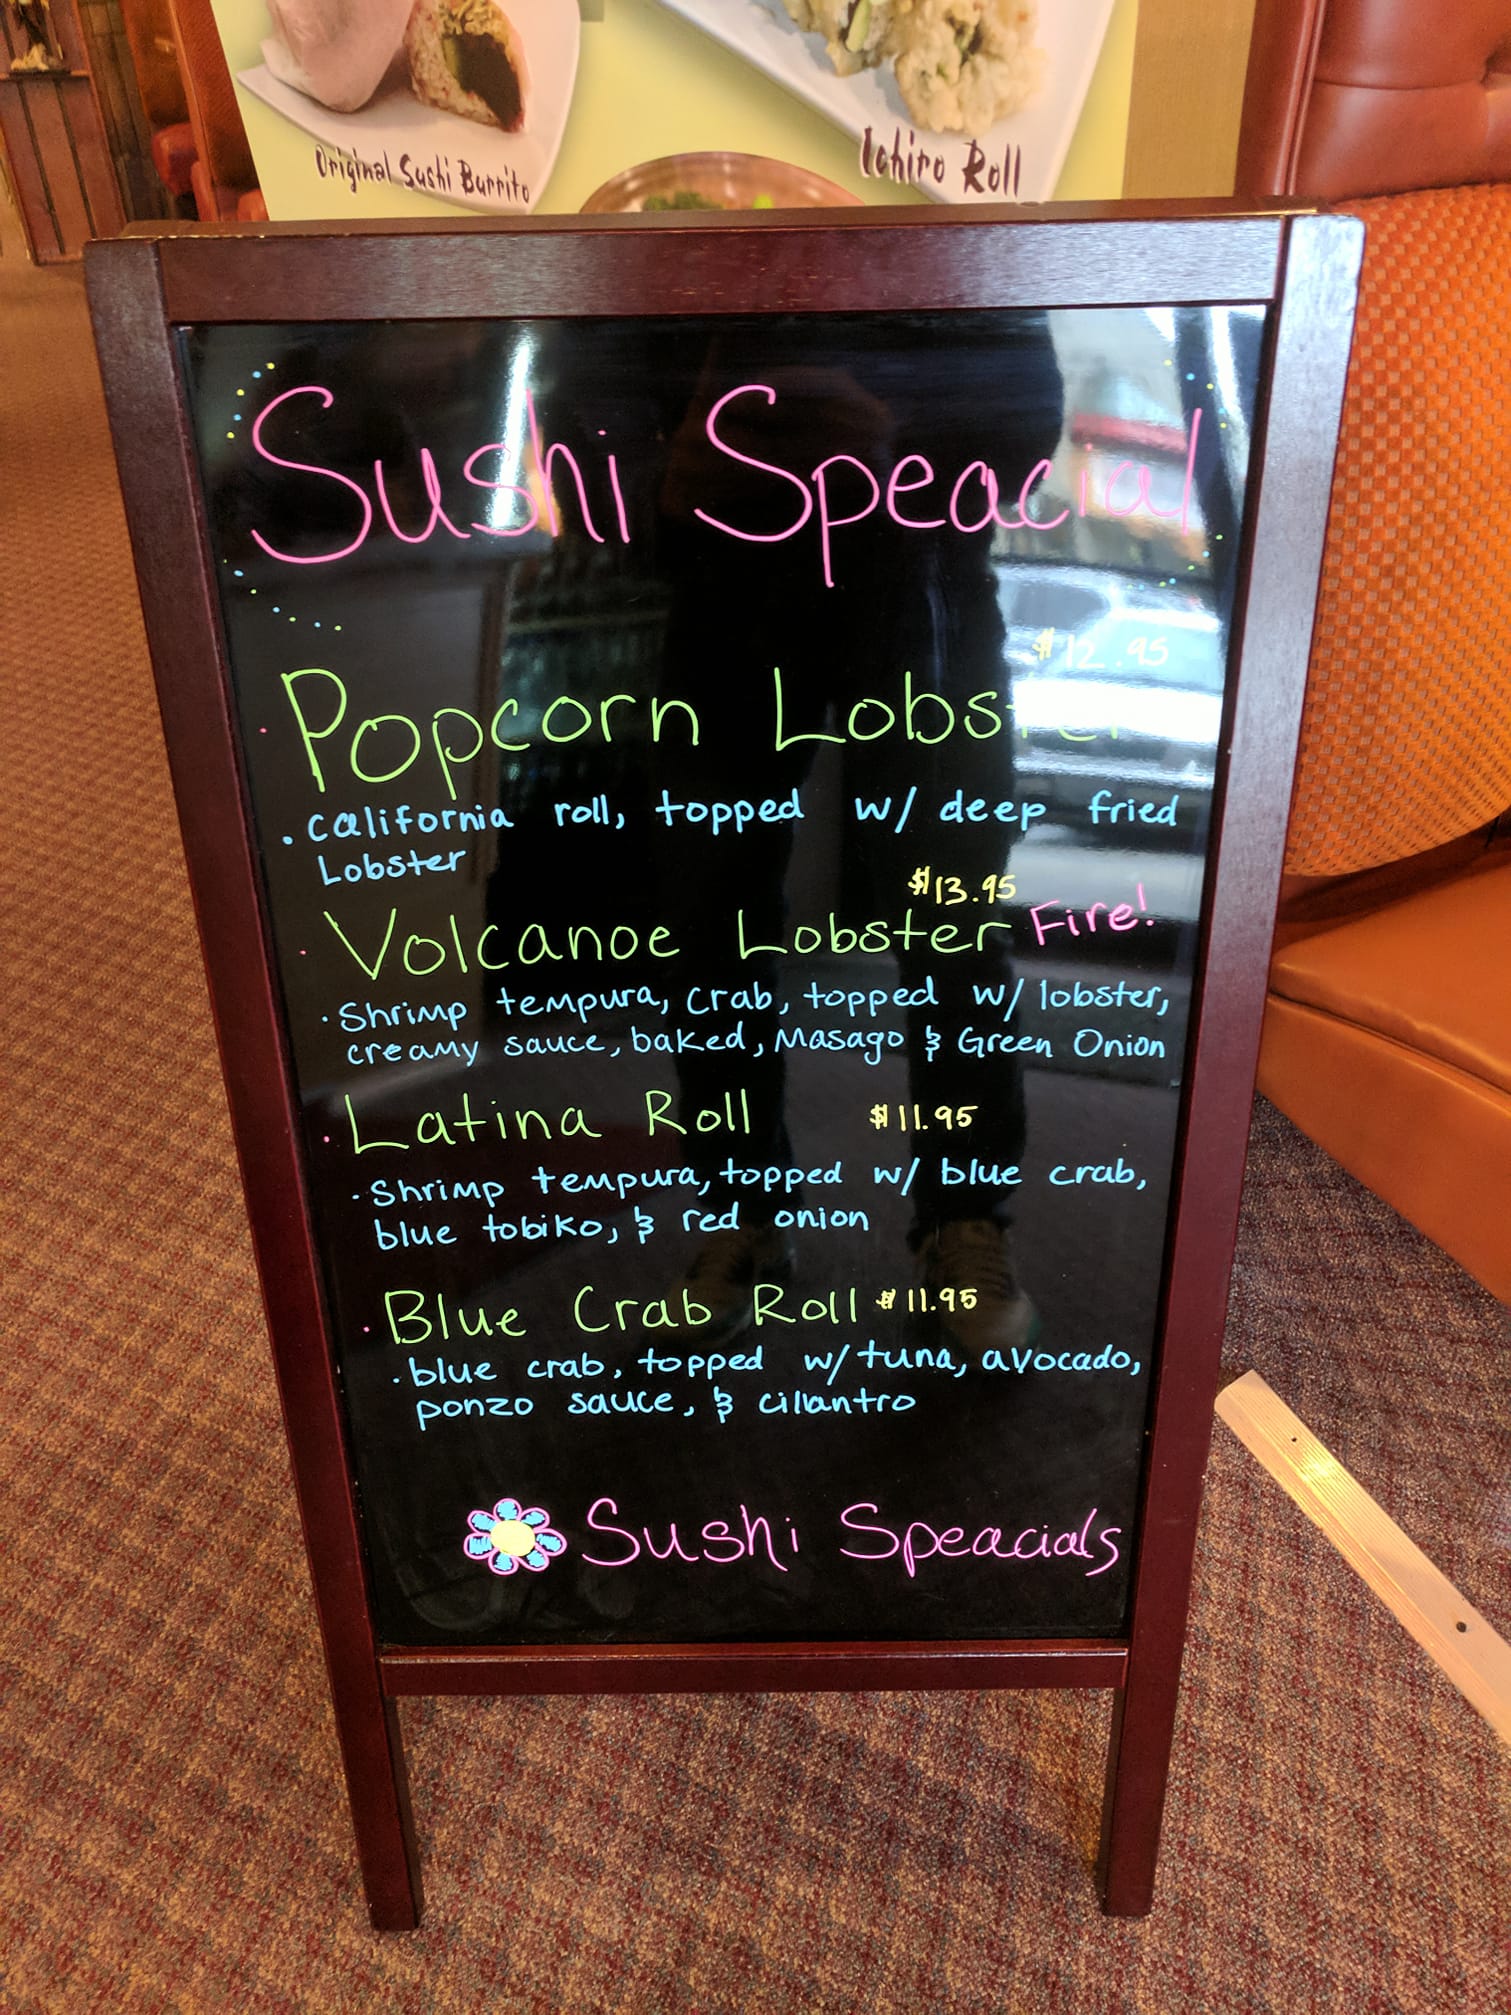 Original Sushi Burrito
Ichiro Roll
Sushi Speacial
$12.95
Popcorn Lobster
. California roll, topped w/ deep fried
Lobster
$13.95
Volcanoe Lobster Fire!
· Shrimp tempura, crab, topped w/ lobster,
creamy sauce, baked, Masago & Green Onion
Latina Roll $11.95
· Shrimp tempura, topped w/ blue crab,
blue tobiko, & red onion
Blue Crab Roll $11.95
. blue crab, topped w/ tuna, avocado,
ponzo sauce, & cillantro
Sushi Speacials